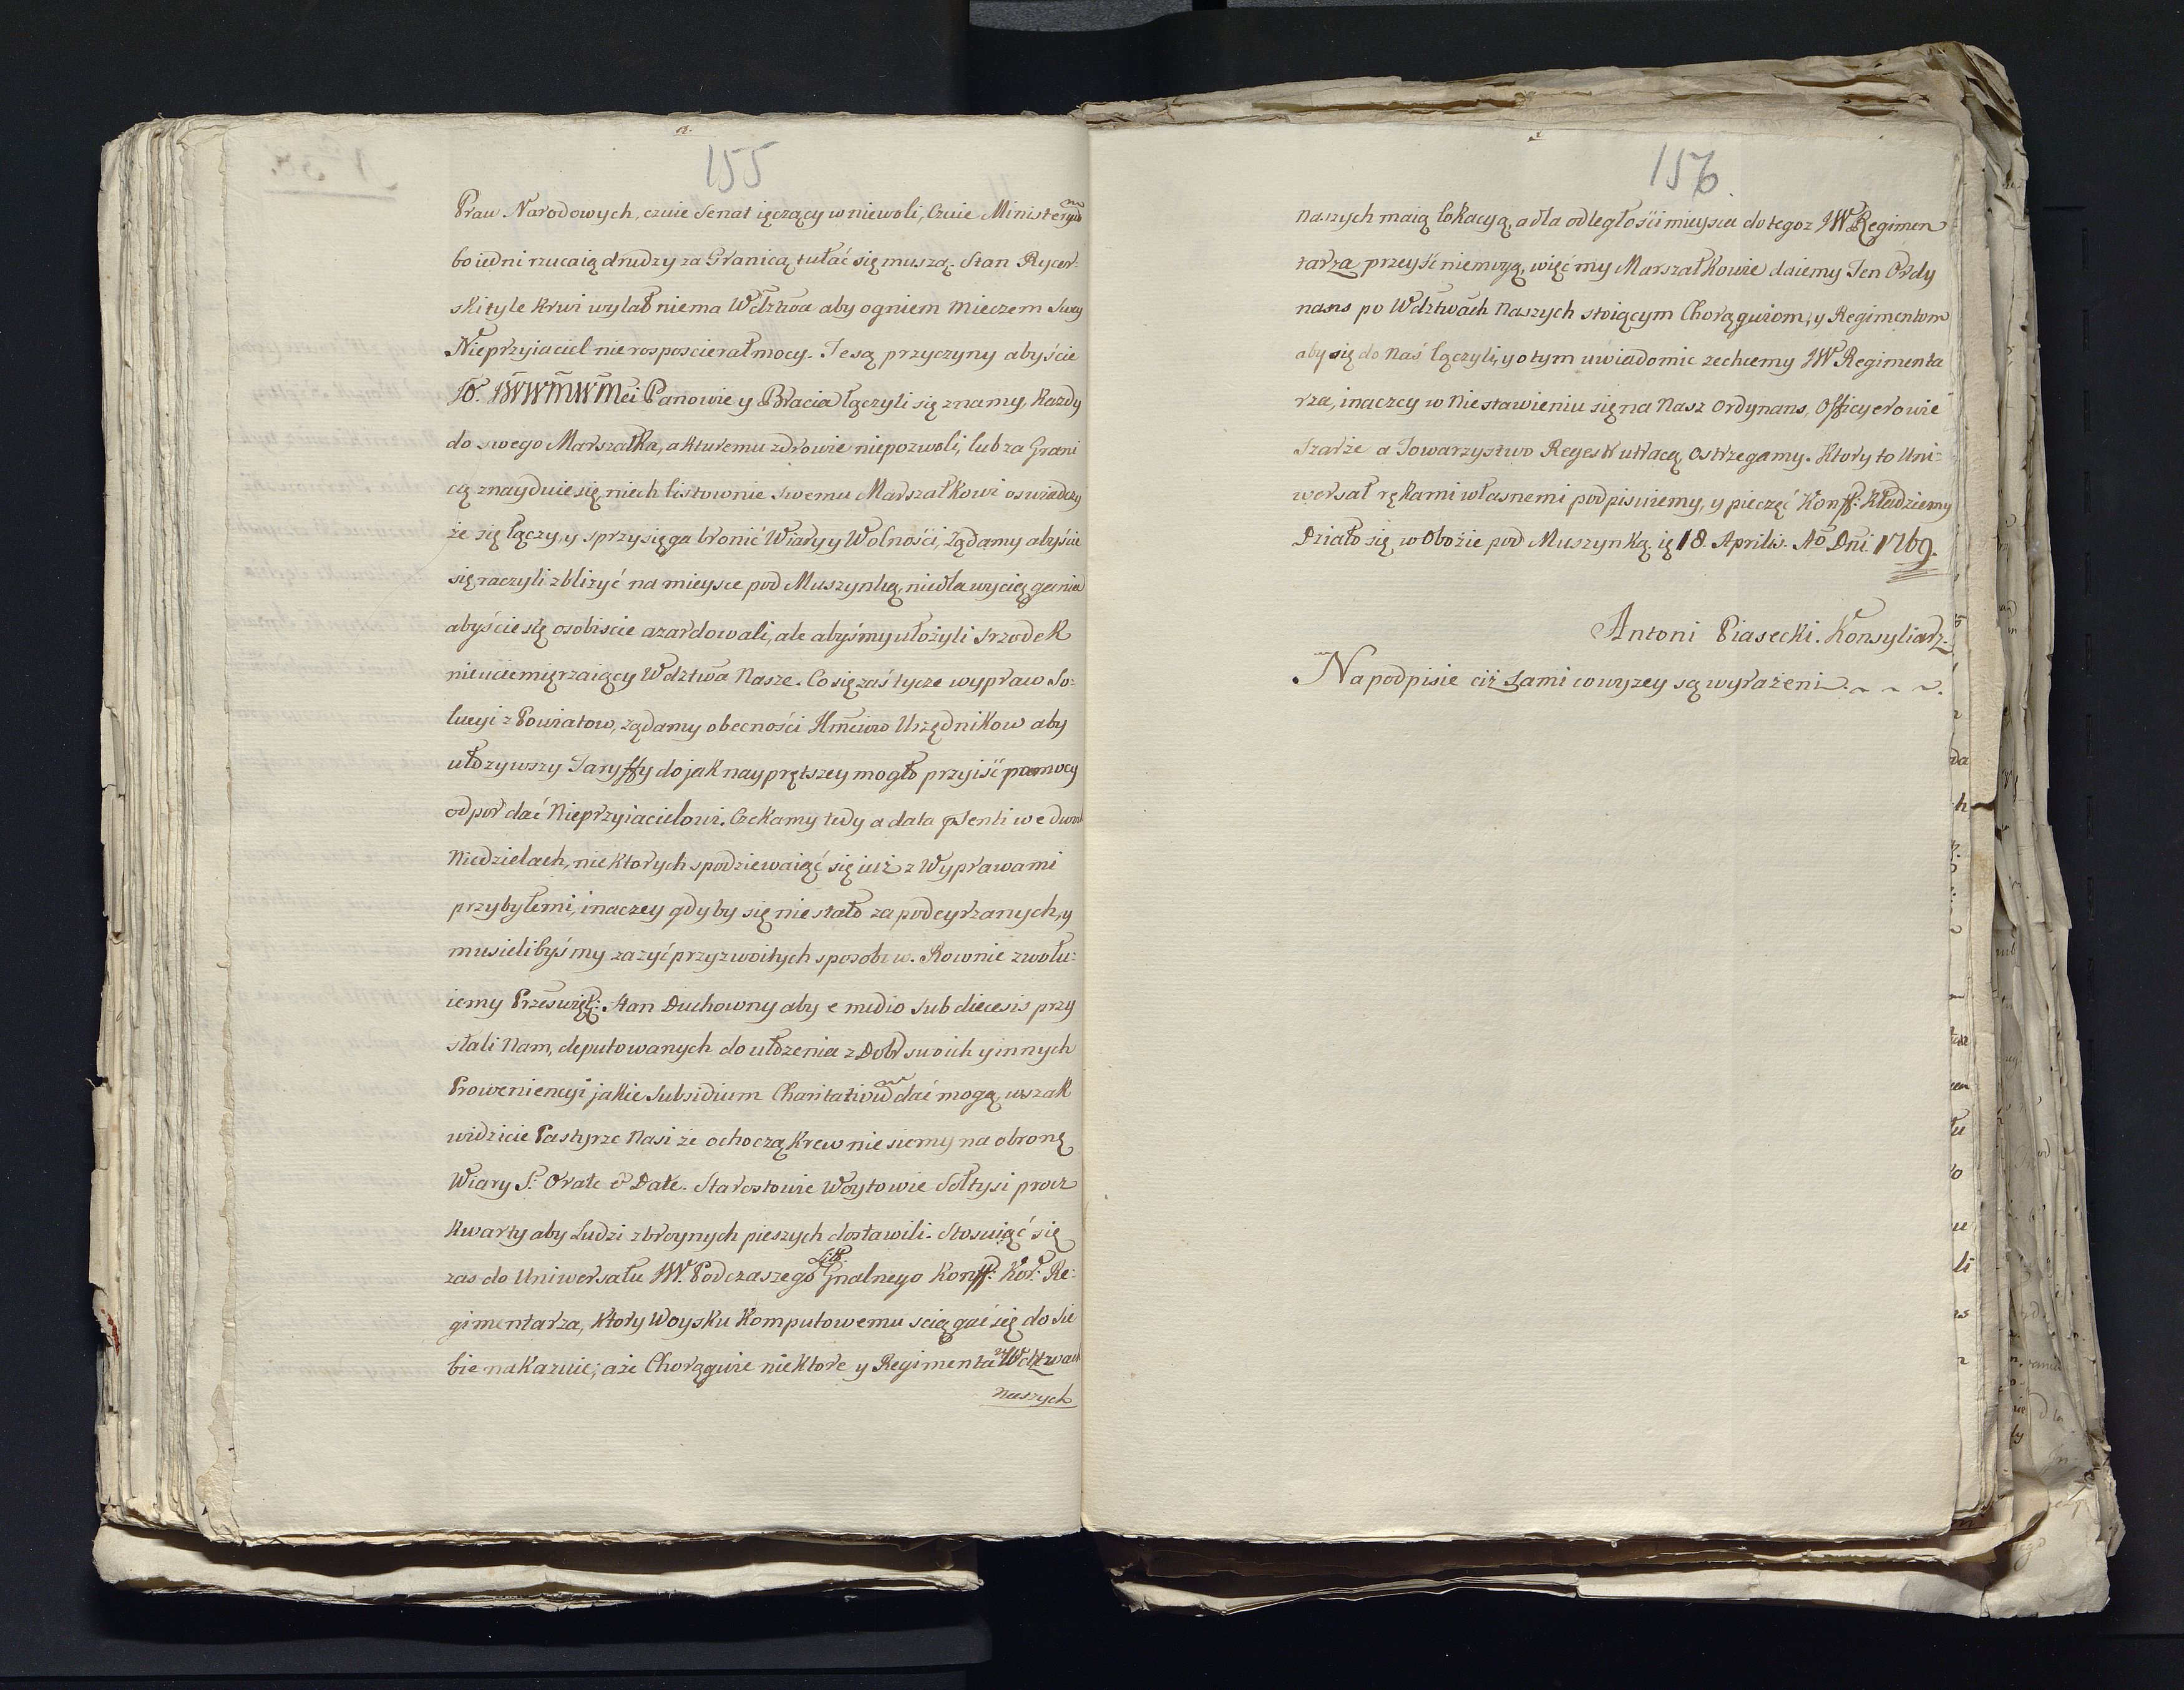 155
Praw Narodowych, czuie Senat ięczący w niewoli, Czuie Ministeryum
bo iedni rzucaią drudzy za Granicą tułać się muszą. Stan Rycer-
ski tyle krwi wylał niema Wdztwa aby ogniem mieczem swey
Nieprzyiaciel nie rosposcierał mocy. Te są przyczyny abyście
JO. JWWMWMei Panowie y Bracia łączyli się znamy, każdy
do swego Marszałka, a kturemu zdrowie niepozwoli, lub za Grani
cą znayduie się niech listownie swemu Marszałkowi oswiadczy
że się łączy, y sprzysięga bronić Wiary y Wolności, Ządamy abyście
się raczyli zbliżyć na mieysce pod Muszynkę, nie dla wyciągania
abyście się osobiscie azardowali, ale abyśmy ułożyli srzodek
nieuciemięrzaiący Wdztwa Nasze. Co się zaś tycze wypraw So-
lucyi z Powiatow, żądamy obecności Jmciow Urzędnikow aby
ułozywszy Taryffy do jak nayprętszey mogło przyiść pomocy
odpor dać Nieprzyiacielowi. Czekamy tedy a data psenti we dwoch
Niedzielach, niektorych spodziewaiąć się iuż z Wyprawami
przybyłemi, inaczey gdyby się nie stało za podeyrzanych, y
musielibyśmy zazyć przyzwoitych sposobow. Rownie zwołu-
iemy Przeswięt: Stan Duchowny aby e medio sub diecesis przy
słali Nam, deputowanych do ułozenia z Dobr swoich y innych
Proweniencyi jakie Subsidium Charitativum dać mogą, wszak
widzicie Pastyrze Nasi że ochoczą krew niesiemy na obronę
Wiary S. Orate & Date. Starostowie Woytowie Sołtysi procz
kwarty aby Ludzi zbroynych pieszych dostawili. Stosuiąć się
zas do Uniwersału JW. Podczaszego Litt: Gnalnego Konff: Kor: Re-
gimentarza, ktory Woysku Komputowemu sciągać się do Sie
bie nakazuie; aże Chorągwie niektore y Regimenta w Wdztwach
naszych
156.
naszych maią lokacyą, a dla odległości mieysca do tegoz JW Regimen
tarza przeyść niemogą, więć my Marszałkowie daiemy Ten Ordy
nans po Wdztwach Naszych stoiącym Chorągwiom, y Regimentom
aby się do Naś łączyli, y o tym uwiadomic zechcemy JW Regimenta
rza, inaczey w Niestawieniu się na Nasz Ordynans, Officyerowie
Szarże a Towarzystwo Regestr utracą Ostrzegamy. Ktory to Uni-
wersał rękami własnemi podpisuiemy, y pieczęć Konff: kładziemy
Działo się w Obozie pod Muszynką ię 18. Aprilis. Ao Dni 1769.
Antoni Piasecki. Konsyliarz
Na podpisie ciż sami co wyzey są wyrażeni.